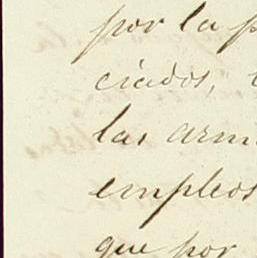 por la p
ciados,
las arm
empleos
que por